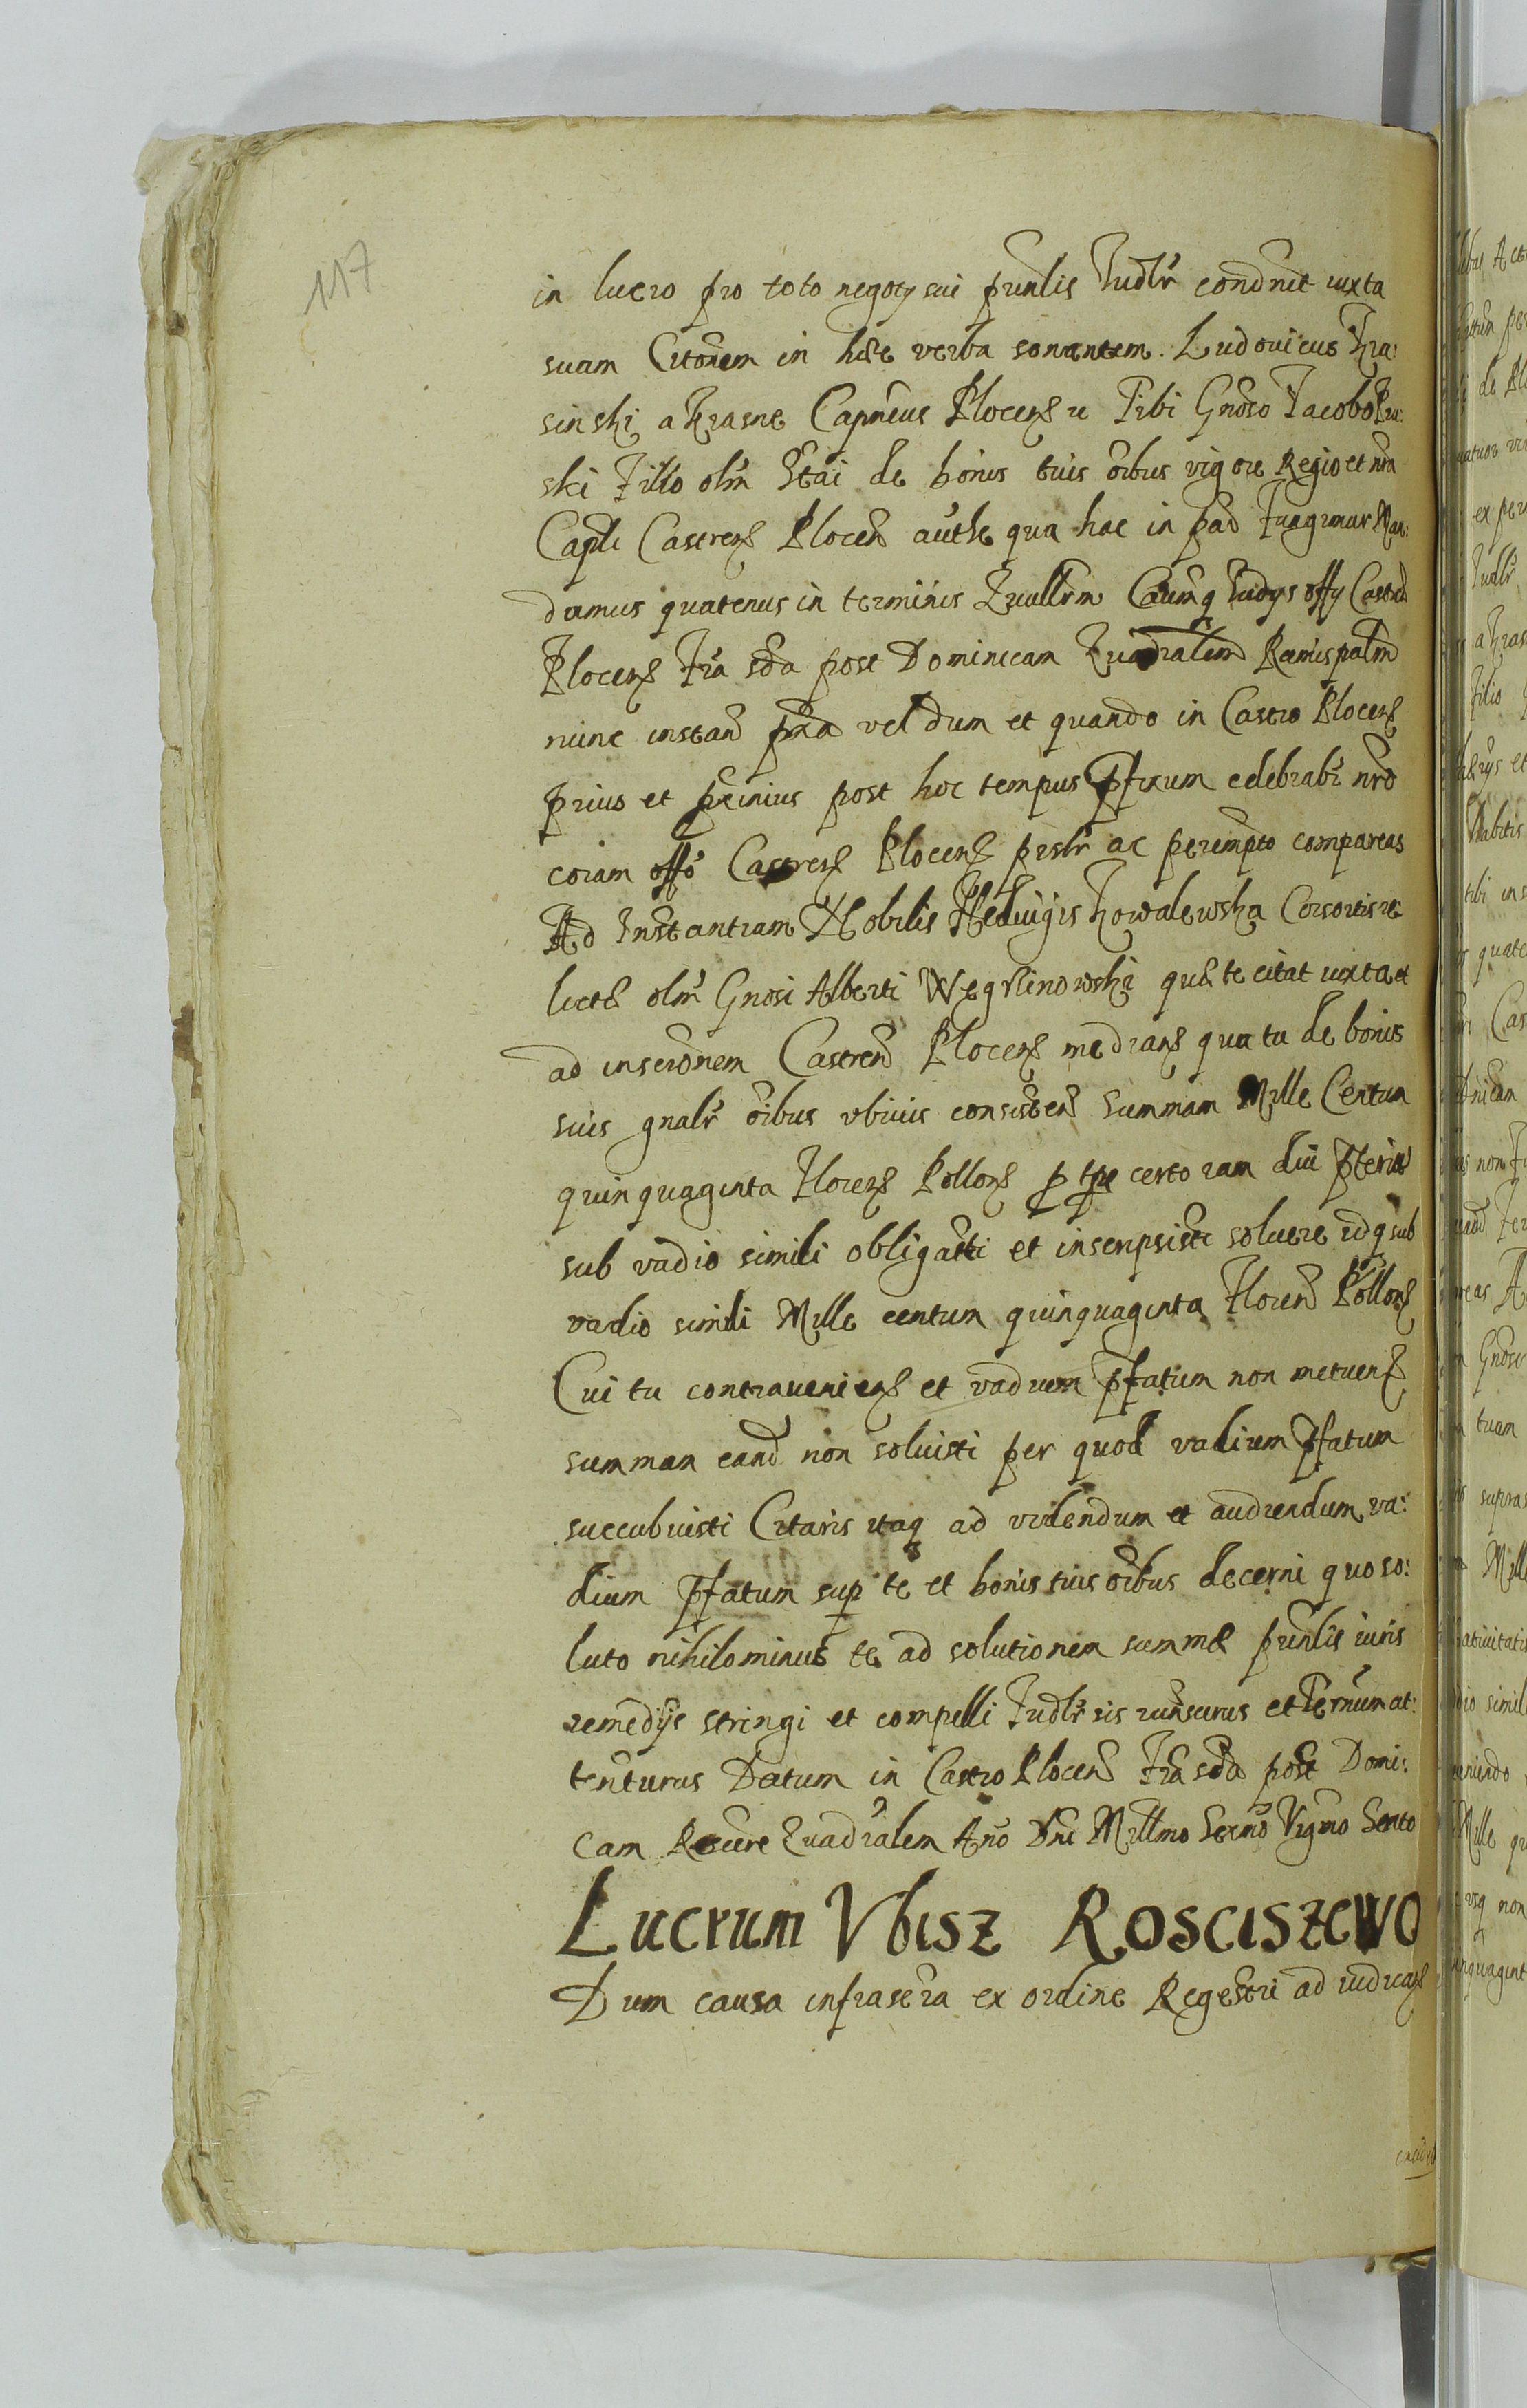 117
in lucro pro toto negoty sui prinlis Iudlr condnit iuxta
suam Citonem in hæc verba sonantem. Ludovicus Kra:
sinski a Krasne Capneus Plocens rc Tibi Gnoso Iacobo
ski Filio olm de bonis tuis oibus vigore Regio et nra
Capli Castrens Plocen authe qua hac in pad Fungimur Man:
damus quatenus in terminis Quellrm Caumq Iudys offy Castren
Plocens Fra sda post Dominicam Quadralem Ramispalm
nunc instan pnd vel dum et quando in Castro Plocens
prius et pcinius post hoc tempus pfixum celebrabr nro
coram offo Castrens Plocens prslr ac perempto compareas
Ad Instantiam Nobilis Heduigis Kowalewska Consortis re
lictæ olm Gnosi Alberti Węgrlinowski quæ te citat iuxta et
ad inscronem Castren Plocens medians qua tu de bonis
suis gnalr oibus vbiuis consisten Summam Mille Centum
quinquaginta Florens Pollons p tpe certo iam diu pterito
sub vadio simili obligasti et inscripsisti soluere idq sub
vadio simili Mille centum quinquaginta Floren Pollons
Cui tu contraueniens et vadium pfatum non metuens
summam eand non soluisti per quod vadium pfatum
succubuisti Citaris itaq ad videndum et audiendum va:
dium pfatum sup te et bonis tuis oibus decerni quo so:
luto nihilominus te ad solutionem summæ prinlis iuris
remedijs stringi et compelli Iudlr sis runsurus et Ternum at:
tenturus Datum in Castro Plocen Fra sda post Domi:
cam Quadralem Ano Dni Millmo Sexmo Vigmo Sexto
LUCRUM Vbisz ROSCISZEWO
Dum causa infrascra ex ordine Regestri ad iudicans